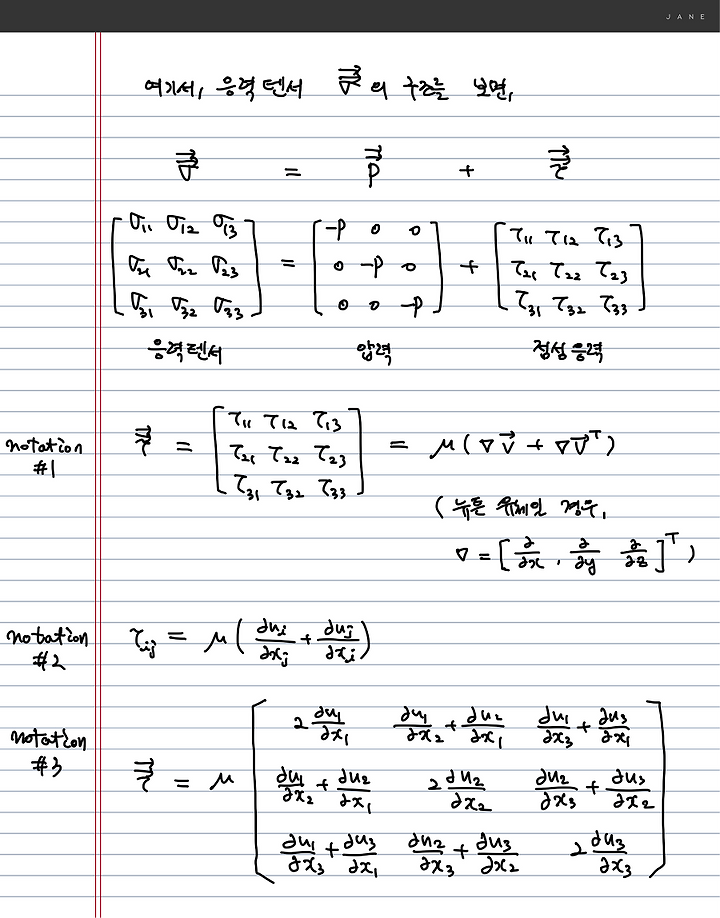 JANE
여기서, 응력텐서 $\vec{\vec{\sigma}}$ 의 구조를 보면,
$\vec{\vec{\sigma}} = \vec{\vec{P}} + \vec{\vec{\tau}}$
$\begin{bmatrix} \sigma_{11} & \sigma_{12} & \sigma_{13} \\ \sigma_{21} & \sigma_{22} & \sigma_{23} \\ \sigma_{31} & \sigma_{32} & \sigma_{33} \end{bmatrix} = \begin{bmatrix} -P & 0 & 0 \\ 0 & -P & 0 \\ 0 & 0 & -P \end{bmatrix} + \begin{bmatrix} \tau_{11} & \tau_{12} & \tau_{13} \\ \tau_{21} & \tau_{22} & \tau_{23} \\ \tau_{31} & \tau_{32} & \tau_{33} \end{bmatrix}$
응력텐서 압력 점성 응력
notation #1 $\vec{\vec{\tau}} = \begin{bmatrix} \tau_{11} & \tau_{12} & \tau_{13} \\ \tau_{21} & \tau_{22} & \tau_{23} \\ \tau_{31} & \tau_{32} & \tau_{33} \end{bmatrix} = \mu(\nabla\vec{v} + \nabla\vec{v}^T)$
(뉴톤 유체인 경우,
$\nabla = [\frac{\partial}{\partial x}, \frac{\partial}{\partial y} \frac{\partial}{\partial z}]^T$)
notation #2 $\tau_{ij} = \mu(\frac{\partial u_i}{\partial x_j} + \frac{\partial u_j}{\partial x_i})$
notation #3 $\vec{\vec{\tau}} = \mu \begin{bmatrix} 2\frac{\partial u_1}{\partial x_1} & \frac{\partial u_1}{\partial x_2} + \frac{\partial u_2}{\partial x_1} & \frac{\partial u_1}{\partial x_3} + \frac{\partial u_3}{\partial x_1} \\ \frac{\partial u_1}{\partial x_2} + \frac{\partial u_2}{\partial x_1} & 2\frac{\partial u_2}{\partial x_2} & \frac{\partial u_2}{\partial x_3} + \frac{\partial u_3}{\partial x_2} \\ \frac{\partial u_1}{\partial x_3} + \frac{\partial u_3}{\partial x_1} & \frac{\partial u_2}{\partial x_3} + \frac{\partial u_3}{\partial x_2} & 2\frac{\partial u_3}{\partial x_3} \end{bmatrix}$